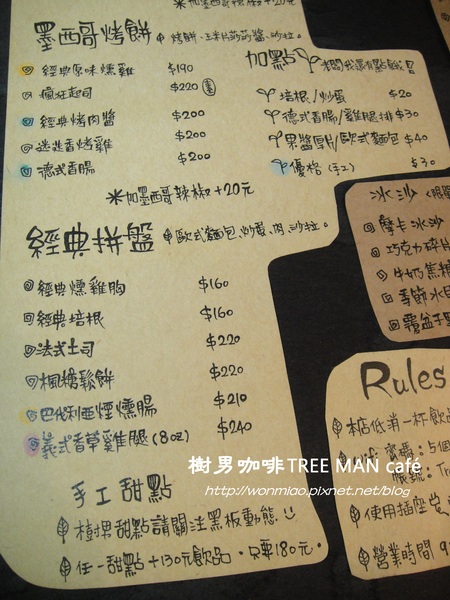 ※加墨西哥辣椒+20元
墨西哥烤餅 烤餅、玉米片莎莎醬、沙拉。
經典原味燻雞 $190
瘋狂起司 $220 素
經典烤肉醬 $200
迷迭香烤雞 $200
德式香腸 $200
※加墨西哥辣椒+20元
加點
培根/炒蛋 $20
德式香腸/雞腿排 $30
果醬厚片/歐式麵包 $40
優格(手工) $30
經典拼盤 歐式麵包、炒蛋、肉、沙拉。
經典燻雞胸 $160
經典培根 $160
法式土司 $220
楓糖鬆餅 $220
巴伐利亞煙燻腸 $210
義式香草雞腿(8oz) $240
手工甜點
樹男甜點請關注黑板動態
任一甜點+130元飲品,只要180元。
冰沙
摩卡冰沙
巧克力碎片
牛奶焦糖
季節水果
覆盆子
Rules
本店低消一杯飲品
wifi 密碼:5個
帳號:Tr
使用插座
營業時間 9
樹男咖啡TREE MAN café
http://wonmiao.pixnet.net/blog